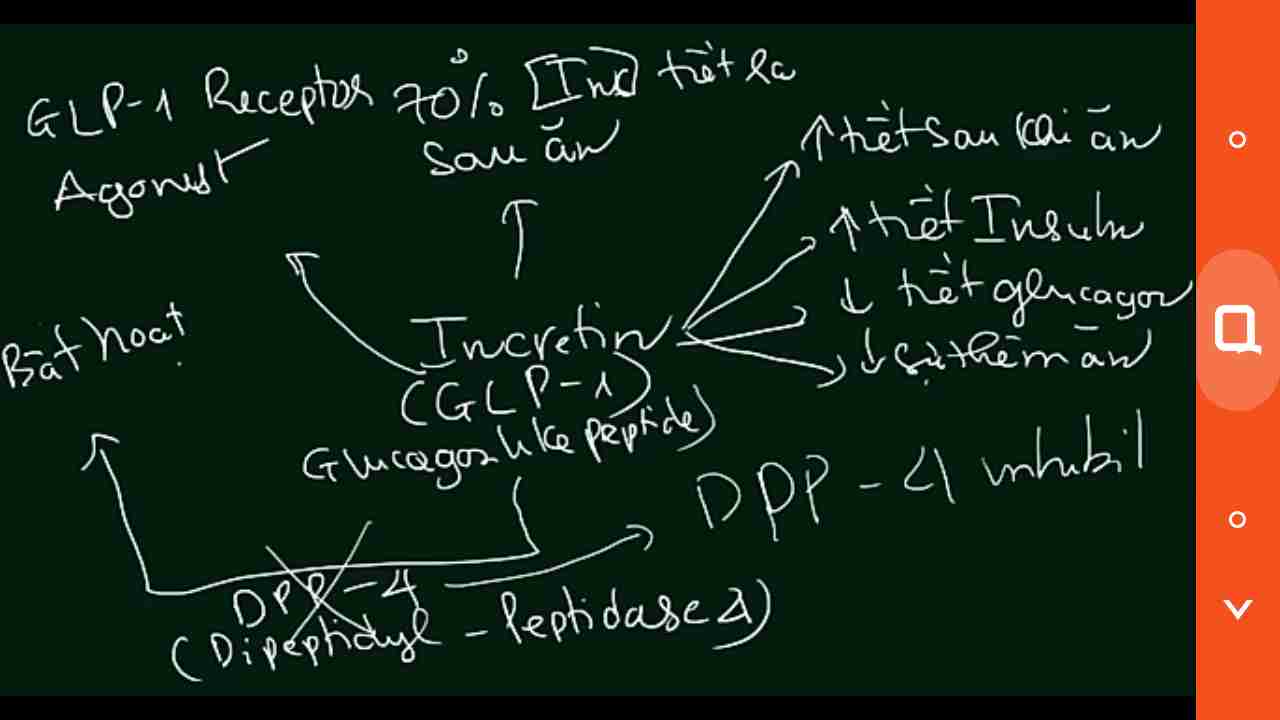 GLP-1 Receptor
Agonist
70% [Inc] tiết ra
sau ăn
↑ tiết sau khi ăn
↑ tiết Insulin
↓ tiết glucagon
↓ sự thèm ăn
Incretin
(GLP-1)
Glucagon like peptide)
Bất hoạt
DPP-4
(Dipeptidyl - Peptidase 4)
DPP-4 inhibil